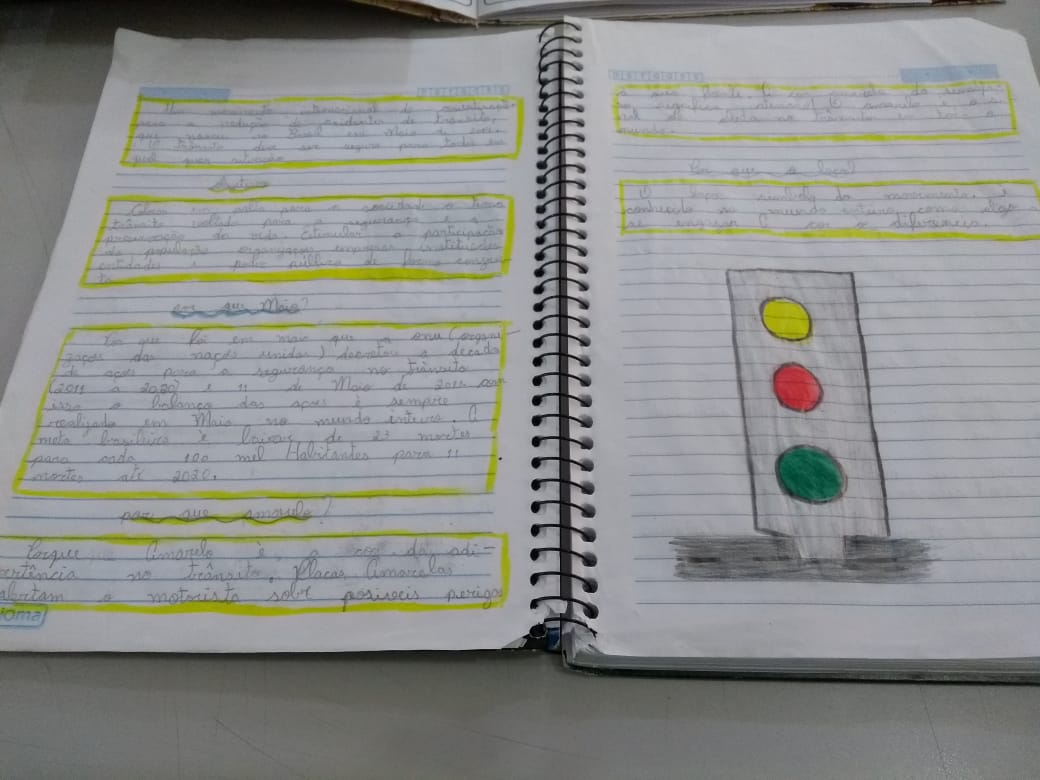 Um movimento internacional de conscientização
para a redução de acidentes de trânsito,
que nasceu no Brasil em Maio de
O trânsito deve ser seguro para todos em
qual quer situação
Colocar em pauta para a sociedade o tema
trânsito voltado para a segurança e a
preservação da vida. Estimular a participação
da população organizações empresas instituições
entidades e poder público de forma
por que Maio?
Por que foi em maio que a onu (organi-
zações das nações unidas) decretou a decada
de ações para a segurança no Trânsito
(2011 à 2020) e 11 de Maio de 2011 com
isso o balanço das ações è sempre
realizada em Maio no mundo inteiro. A
meta brasileira è baixar de 23 mortes
para cada 100 mil Habitantes para 11
mortes até 2020.
por que amarelo?
Porque Amarelo è a cor da adi-
vertência no trânsito. Placas Amarelas
alertam o motorista sobr posiveis perigos
ioma
a sua frente. A cor amarela do
significa atenção! O amarelo e o
de alerta no trânsito em todo o
mundo.
Por que o laço?
O laço simboly do movimento, è
conhecido no mundo enturo como algo
a cor o diferencia.